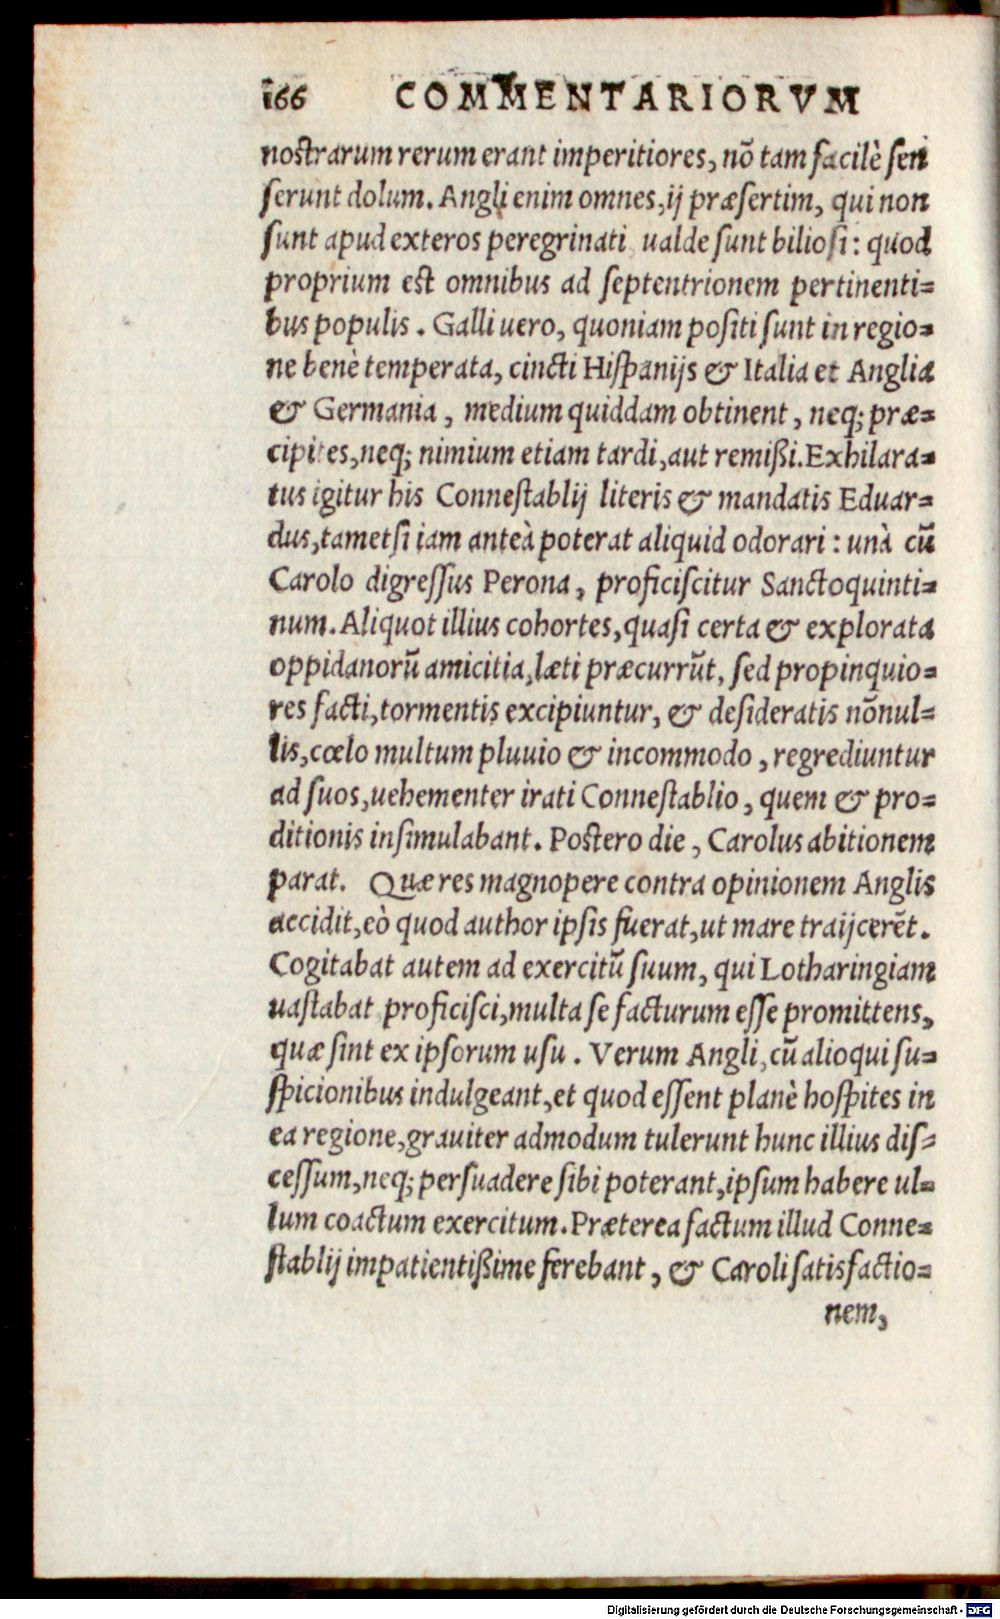 166 COMMENTARIORVM
nostrarum rerum erant imperitiores, nõ tam facilè sen
serunt dolum. Angli enim omnes, ij præsertim, qui non
sunt apud exteros peregrinati ualde sunt biliosi: quod
proprium est omnibus ad septentrionem pertinenti=
bus populis. Galli uero, quoniam positi sunt in regio=
ne benè temperata, cincti Hispanijs & Italia et Anglia
& Germania, medium quiddam obtinent, neq; præ=
cipites, neq; nimium etiam tardi, aut remißi. Exhilara=
tus igitur his Connestablij literis & mandatis Eduar=
dus, tametsi iam anteà poterat aliquid odorari: unà cũ
Carolo digressus Perona, proficiscitur Sanctoquinti=
num. Aliquot illius cohortes, quasi certa & explorata
oppidanorũ amicitia, læti præcurrũt, sed propinquio=
res facti, tormentis excipiuntur, & desideratis nõnul=
lis, cœlo multum pluuio & incommodo, regrediuntur
ad suos, uehementer irati Connestablio, quem & pro=
ditionis insimulabant. Postero die, Carolus abitionem
parat. Quæ res magnopere contra opinionem Anglis
accidit, eò quod author ipsis fuerat, ut mare traijcerẽt.
Cogitabat autem ad exercitũ suum, qui Lotharingiam
uastabat proficisci, multa se facturum esse promittens,
quæ sint ex ipsorum usu. Verum Angli, cũ alioqui su=
spicionibus indulgeant, et quod essent planè hospites in
ea regione, grauiter admodum tulerunt hunc illius dis=
cessum, neq; persuadere sibi poterant, ipsum habere ul=
lum coactum exercitum. Præterea factum illud Conne=
stablij impatientißime ferebant, & Caroli satisfactio=
nem,
Digitalisierung gefördert durch die Deutsche Forschungsgemeinschaft - DFG